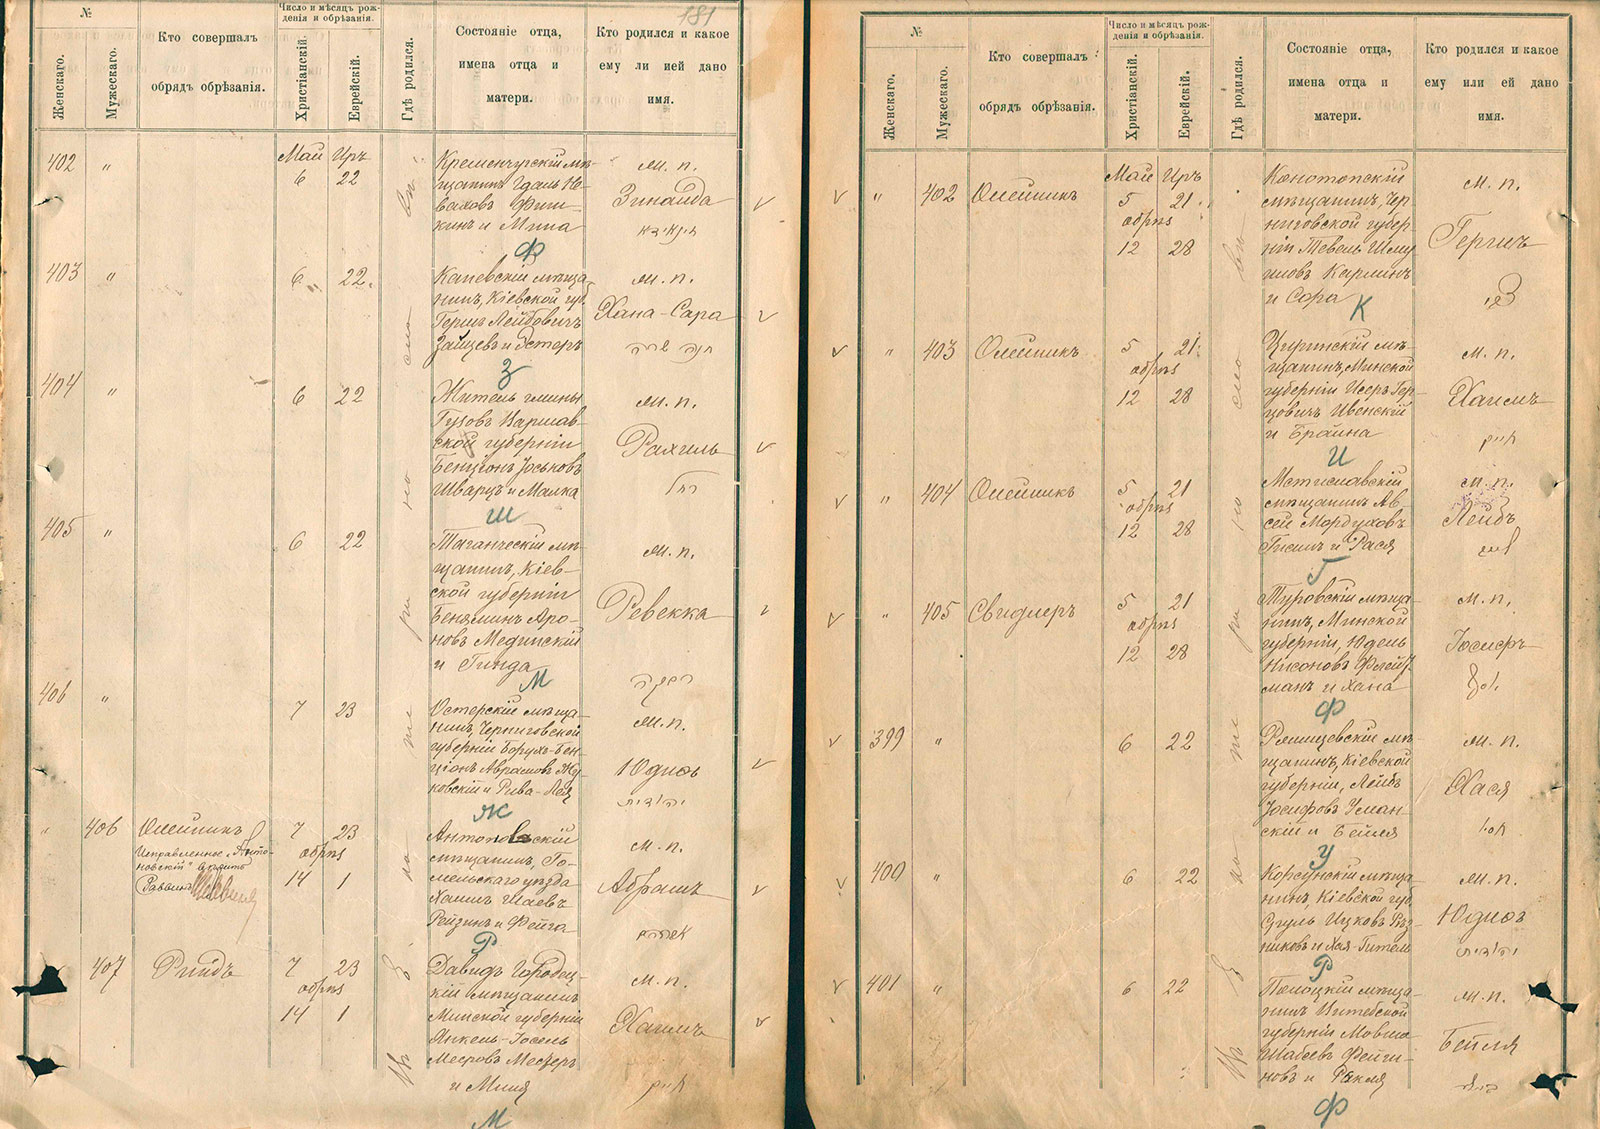 181
№
Женскаго.
Мужескаго.
Кто совершалъ
обрядъ обрѣзанія.
Число и мѣсяцъ рож-
денія и обрѣзанія.
Христіанскій.
Еврейскій.
Гдѣ родился.
Состояніе отца,
имена отца и
матери.
Кто родился и какое
ему ли ией дано
имя.
402 "
Май Иръ
6 22
Кременчугскій мѣ-
щанинъ
и Мина
м. п.
Зинаида
Ф
403 "
6 22
Каневскій мѣща-
нинъ, Кіевской губ.
Гершъ Лейбовичъ
Зайцевъ и Эстеръ
м. п.
Хана-Сара
חנה שרה
З
404 "
6 22
Житель гмины
Гузовъ Варшав-
ской губерніи
Бенціонъ Іоськовъ
Шварцъ и Малка
м. п.
Рахиль
רחל
Ш
405 "
6 22
Таганческій мѣ-
щанинъ, Кіев-
ской губерніи
Беняминъ Аро-
новъ Мединскій
и Гинда
м. п.
Ревекка
רבקה
М
406 "
7 23
Остерскій мѣща-
нинъ, Черниговской
губерніи Борухъ-Бен-
ціонъ Аврамовъ Жу-
ковскій и Рива-Лея
м. п.
Юдиѳь
יהודית
Ж
" 406 Олейникъ
Исправленное „Анто-
новскій" вѣрить
Раввинъ
7 23
обрѣз
14 1
Антоновскій
мѣщанинъ, Го-
мельскаго уѣзда
Хаимъ Шаевъ
Рейзинъ и Фейга
м. п.
Абрамъ
אברהם
Р
407 Риндъ
7 23
обрѣз
14 1
Давидъ Городец-
кій мѣщанинъ
Минской губерніи
Янкель-Іосель
Мееровъ
и
м. п.
Хаимъ
חיים
М
№
Женскаго.
Мужескаго.
Кто совершалъ
обрядъ обрѣзанія.
Число и мѣсяцъ рож-
денія и обрѣзанія.
Христіанскій.
Еврейскій.
Гдѣ родился.
Состояніе отца,
имена отца и
матери.
Кто родился и какое
ему или ей дано
имя.
" 402 Олейникъ
Май Иръ
5 21
обрѣз
12 28
Конотопскій
мѣщанинъ, Чер-
ниговской губер-
ніи Тевель Шму-
иловъ Карлинъ
и Сора
м. п.
Гершъ
К
" 403 Олейникъ
5 21
обрѣз
12 28
мѣ-
щанинъ, Минской
губерніи Исеръ Гер-
цовичъ Ивенскій
и Брайна
м. п.
Хаимъ
חיים
И
" 404 Олейникъ
5 21
обрѣз
12 28
Мстиславскій
мѣщанинъ Ав-
сей Мордуховъ
и Рася
м. п.
Лейбъ
לייב
Г
" 405 Свидлеръ
5 21
обрѣз
12 28
Туровскій мѣща-
нинъ, Минской
губерніи, Юдель
Нисоновъ Флейш-
манъ и Хана
м. п.
Іосифъ
Ф
399 "
6 22
Ржищевскій мѣ-
щанинъ, Кіевской
губерніи, Лейбъ
Іосифовъ Уман-
скій и Бейля
м. п.
Хася
חסי'
У
400 "
6 22
Корсунскій мѣща-
нинъ, Кіевской губ.
Сруль Ицковъ Рѣз-
никовъ и Хая-Гитель
м. п.
Юдиѳь
יהודית
Р
401 "
6 22
Полоцкій мѣща-
нинъ Витебской
губерніи Мовша
Шабсевъ Фейги-
новъ и
м. п.
Бейля
Ф